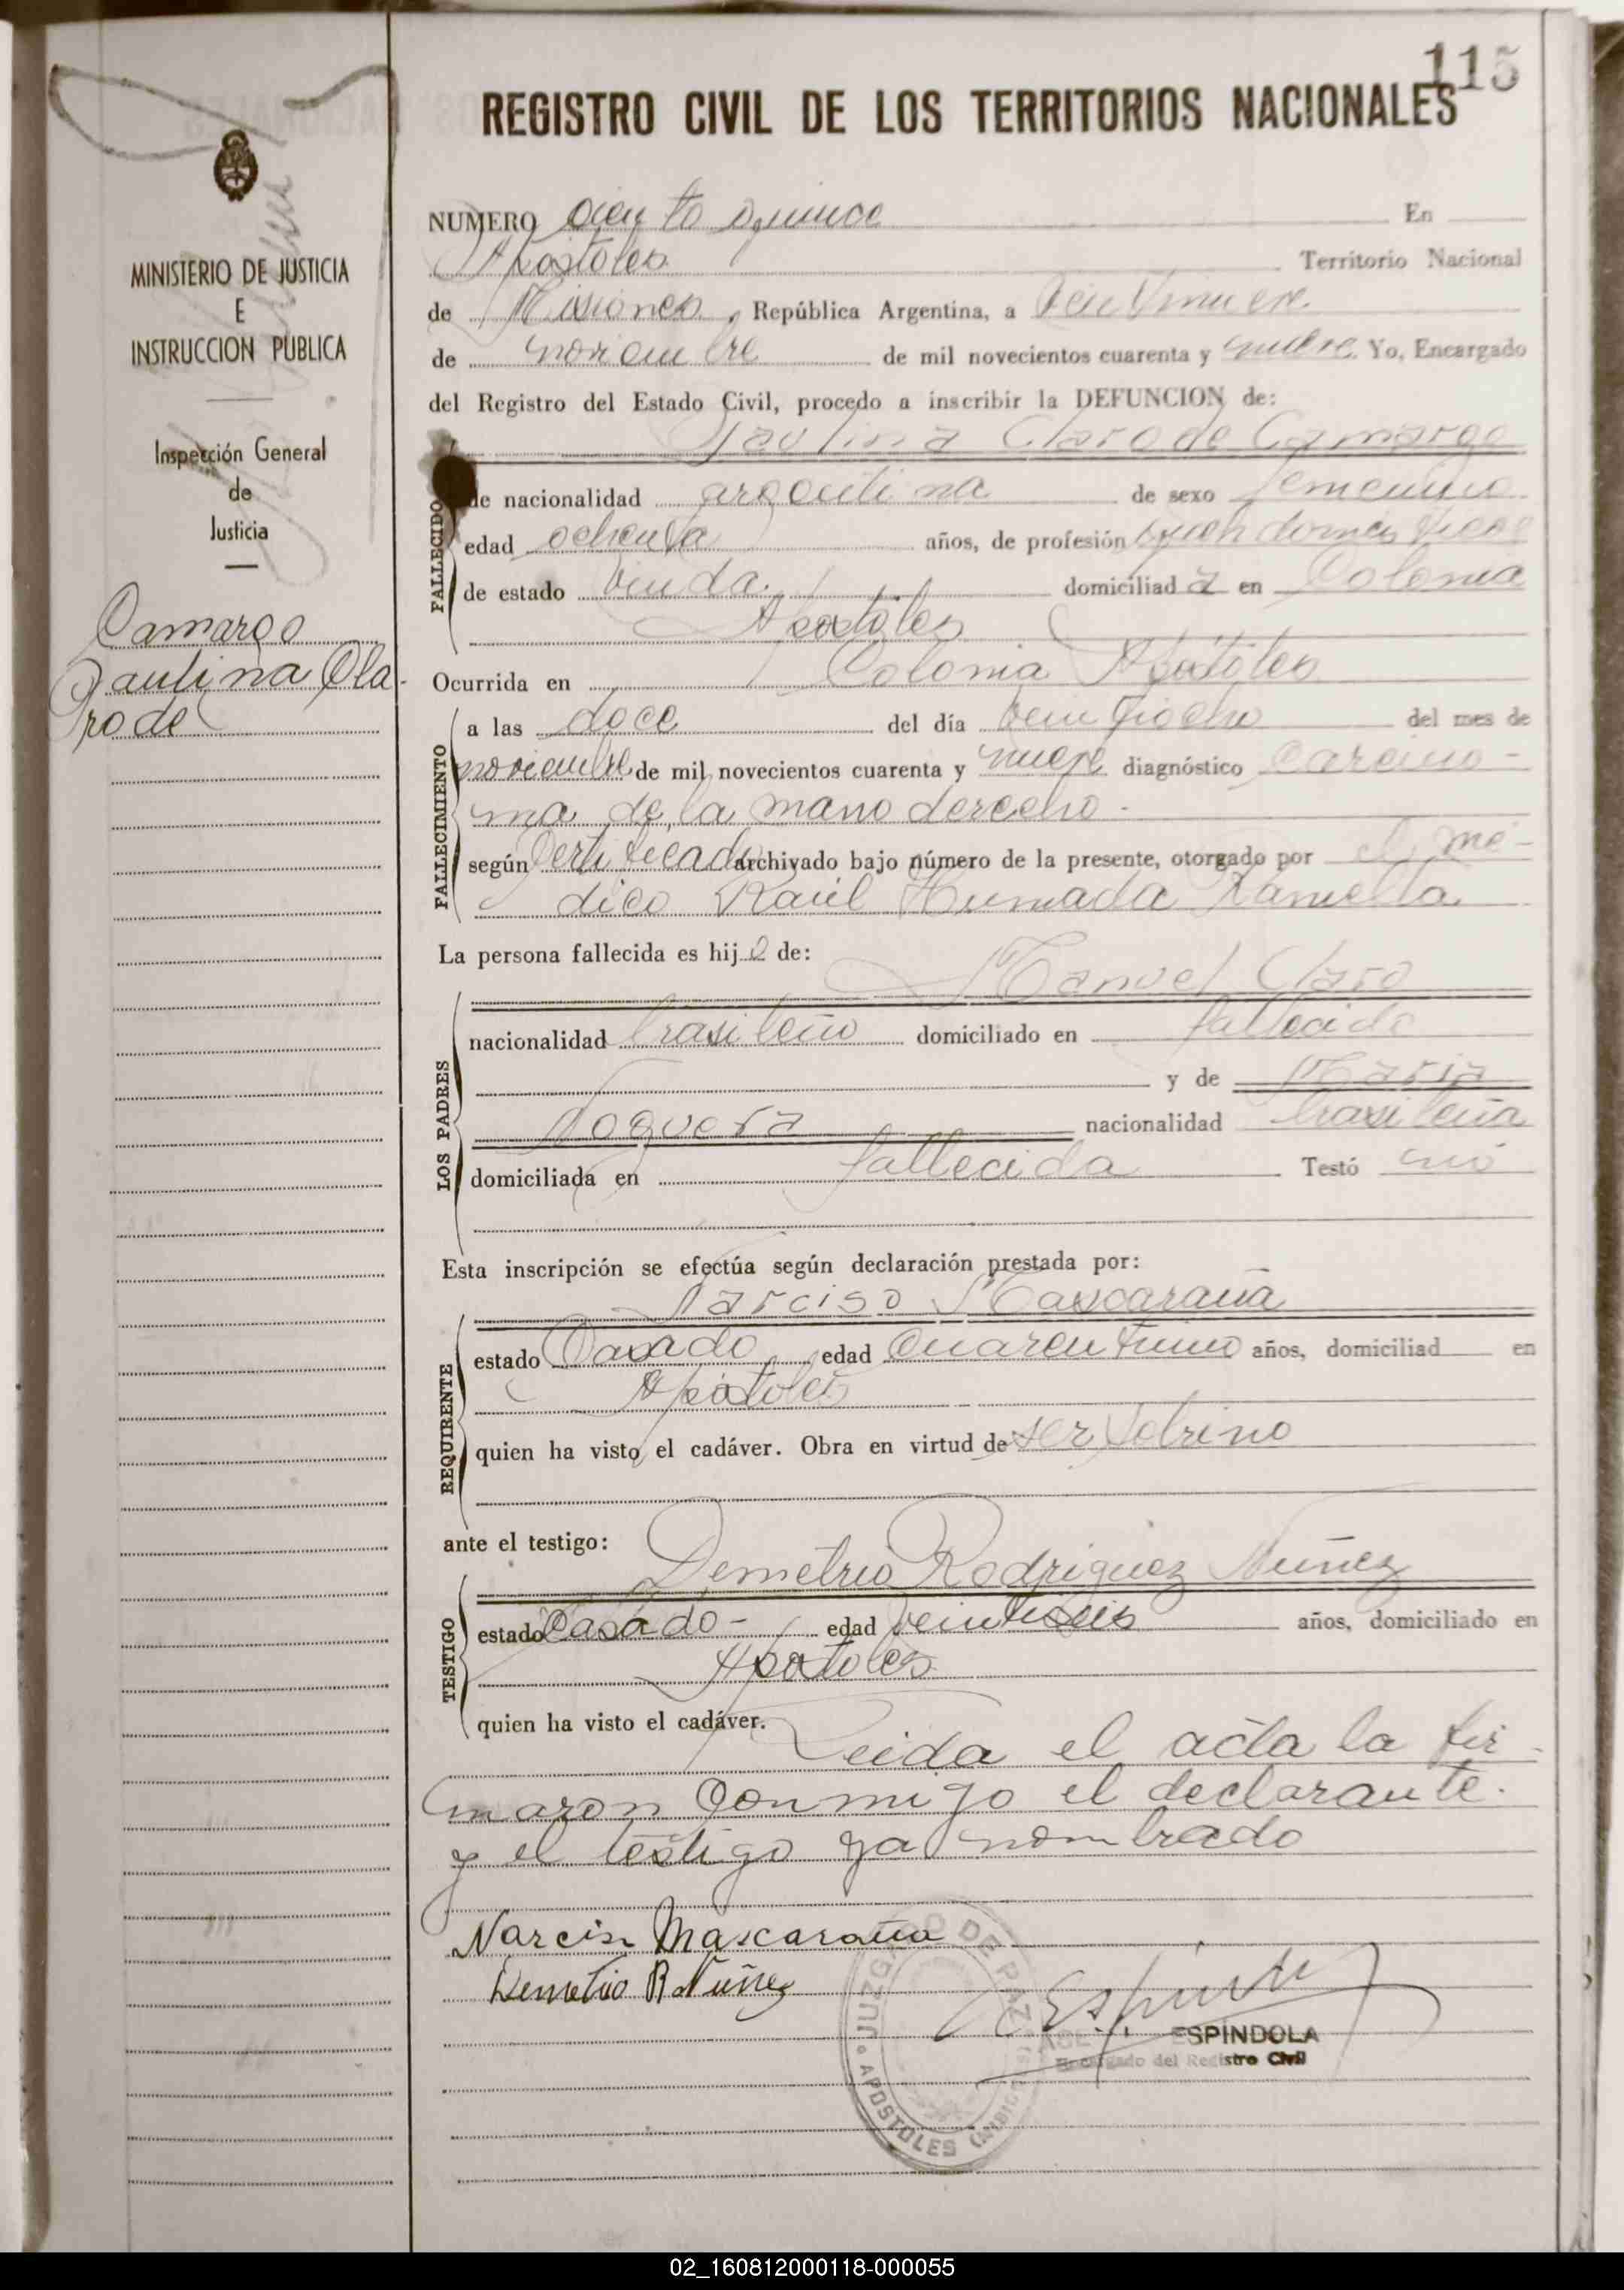 115
REGISTRO CIVIL DE LOS TERRITORIOS NACIONALES
MINISTERIO DE JUSTICIA
E
INSTRUCCION PUBLICA
Inspección General
de
Justicia
Camargo
Paulina Cla-
ro de
NUMERO ciento quince En
Apóstoles Territorio Nacional
de Misiones, República Argentina, a veintinueve
de noviembre de mil novecientos cuarenta y nueve. Yo, Encargado
del Registro del Estado Civil, procedo a inscribir la DEFUNCION de:
Paulina Claro de Camargo
FALLECIDO
de nacionalidad argentina de sexo femenino
edad ochenta años, de profesión domésticos
de estado viuda. domiciliada en Colonia
Apóstoles
Ocurrida en Colonia Apóstoles
FALLECIMIENTO
a las doce del día veintiocho del mes de
noviembre de mil novecientos cuarenta y nueve diagnóstico Carcino-
ma de la mano derecho-
según Certificado archivado bajo número de la presente, otorgado por el mé-
dico Raúl Humada Ramella
La persona fallecida es hija de:
LOS PADRES
Manuel Claro
nacionalidad brasileño domiciliado en fallecido
y de Maria
Noguera nacionalidad brasileña
domiciliada en fallecida Testó nó
Esta inscripción se efectúa según declaración prestada por:
REQUIRENTE
Narciso Mascaraña
estado Casado edad cuarentiuno años, domiciliad en
Apóstoles
quien ha visto el cadáver. Obra en virtud de ser sobrino
ante el testigo:
TESTIGO
Demetrio Rodriguez Núñez
estado Casado- edad veintiseis años, domiciliado en
Apóstoles
quien ha visto el cadáver.
Leida el acta la fir-
maron conmigo el declarante.
y el testigo ya nombrado
Narciso Mascaraña
Demetrio R. Nuñez
JUZGADO DE PAZ
APOSTOLES
ESPINDOLA
Encargado del Registro Civil
02_160812000118-000055